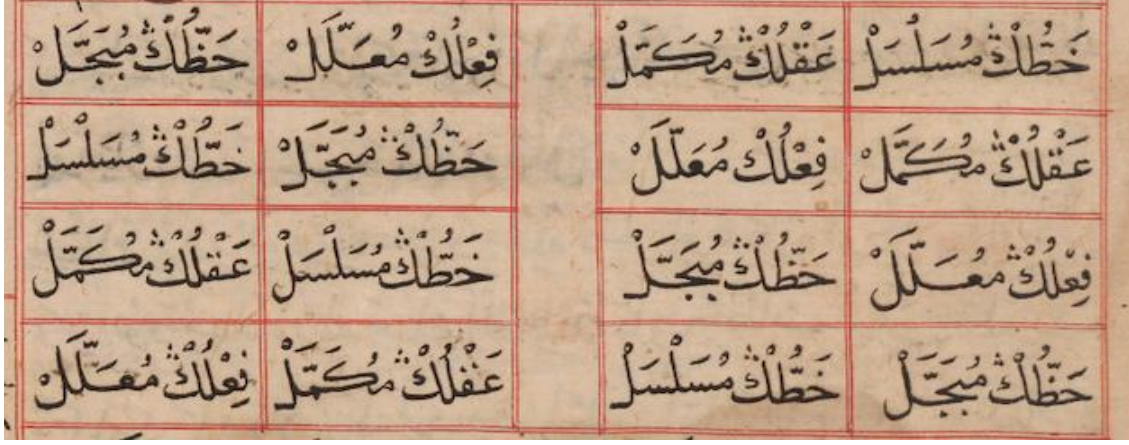 خَطُّكْ مُسَلْسَلْ عَقْلُكْ مُكَمَّلْ فِعْلُكْ مُعَلَّلْ حَظُّكْ مُبَجَّلْ
عَقْلُكْ مُكَمَّلْ فِعْلُكْ مُعَلَّلْ حَظُّكْ مُبَجَّلْ خَطُّكْ مُسَلْسَلْ
فِعْلُكْ مُعَلَّلْ حَظُّكْ مُبَجَّلْ خَطُّكْ مُسَلْسَلْ عَقْلُكْ مُكَمَّلْ
حَظُّكْ مُبَجَّلْ خَطُّكْ مُسَلْسَلْ عَقْلُكْ مُكَمَّلْ فِعْلُكْ مُعَلَّلْ